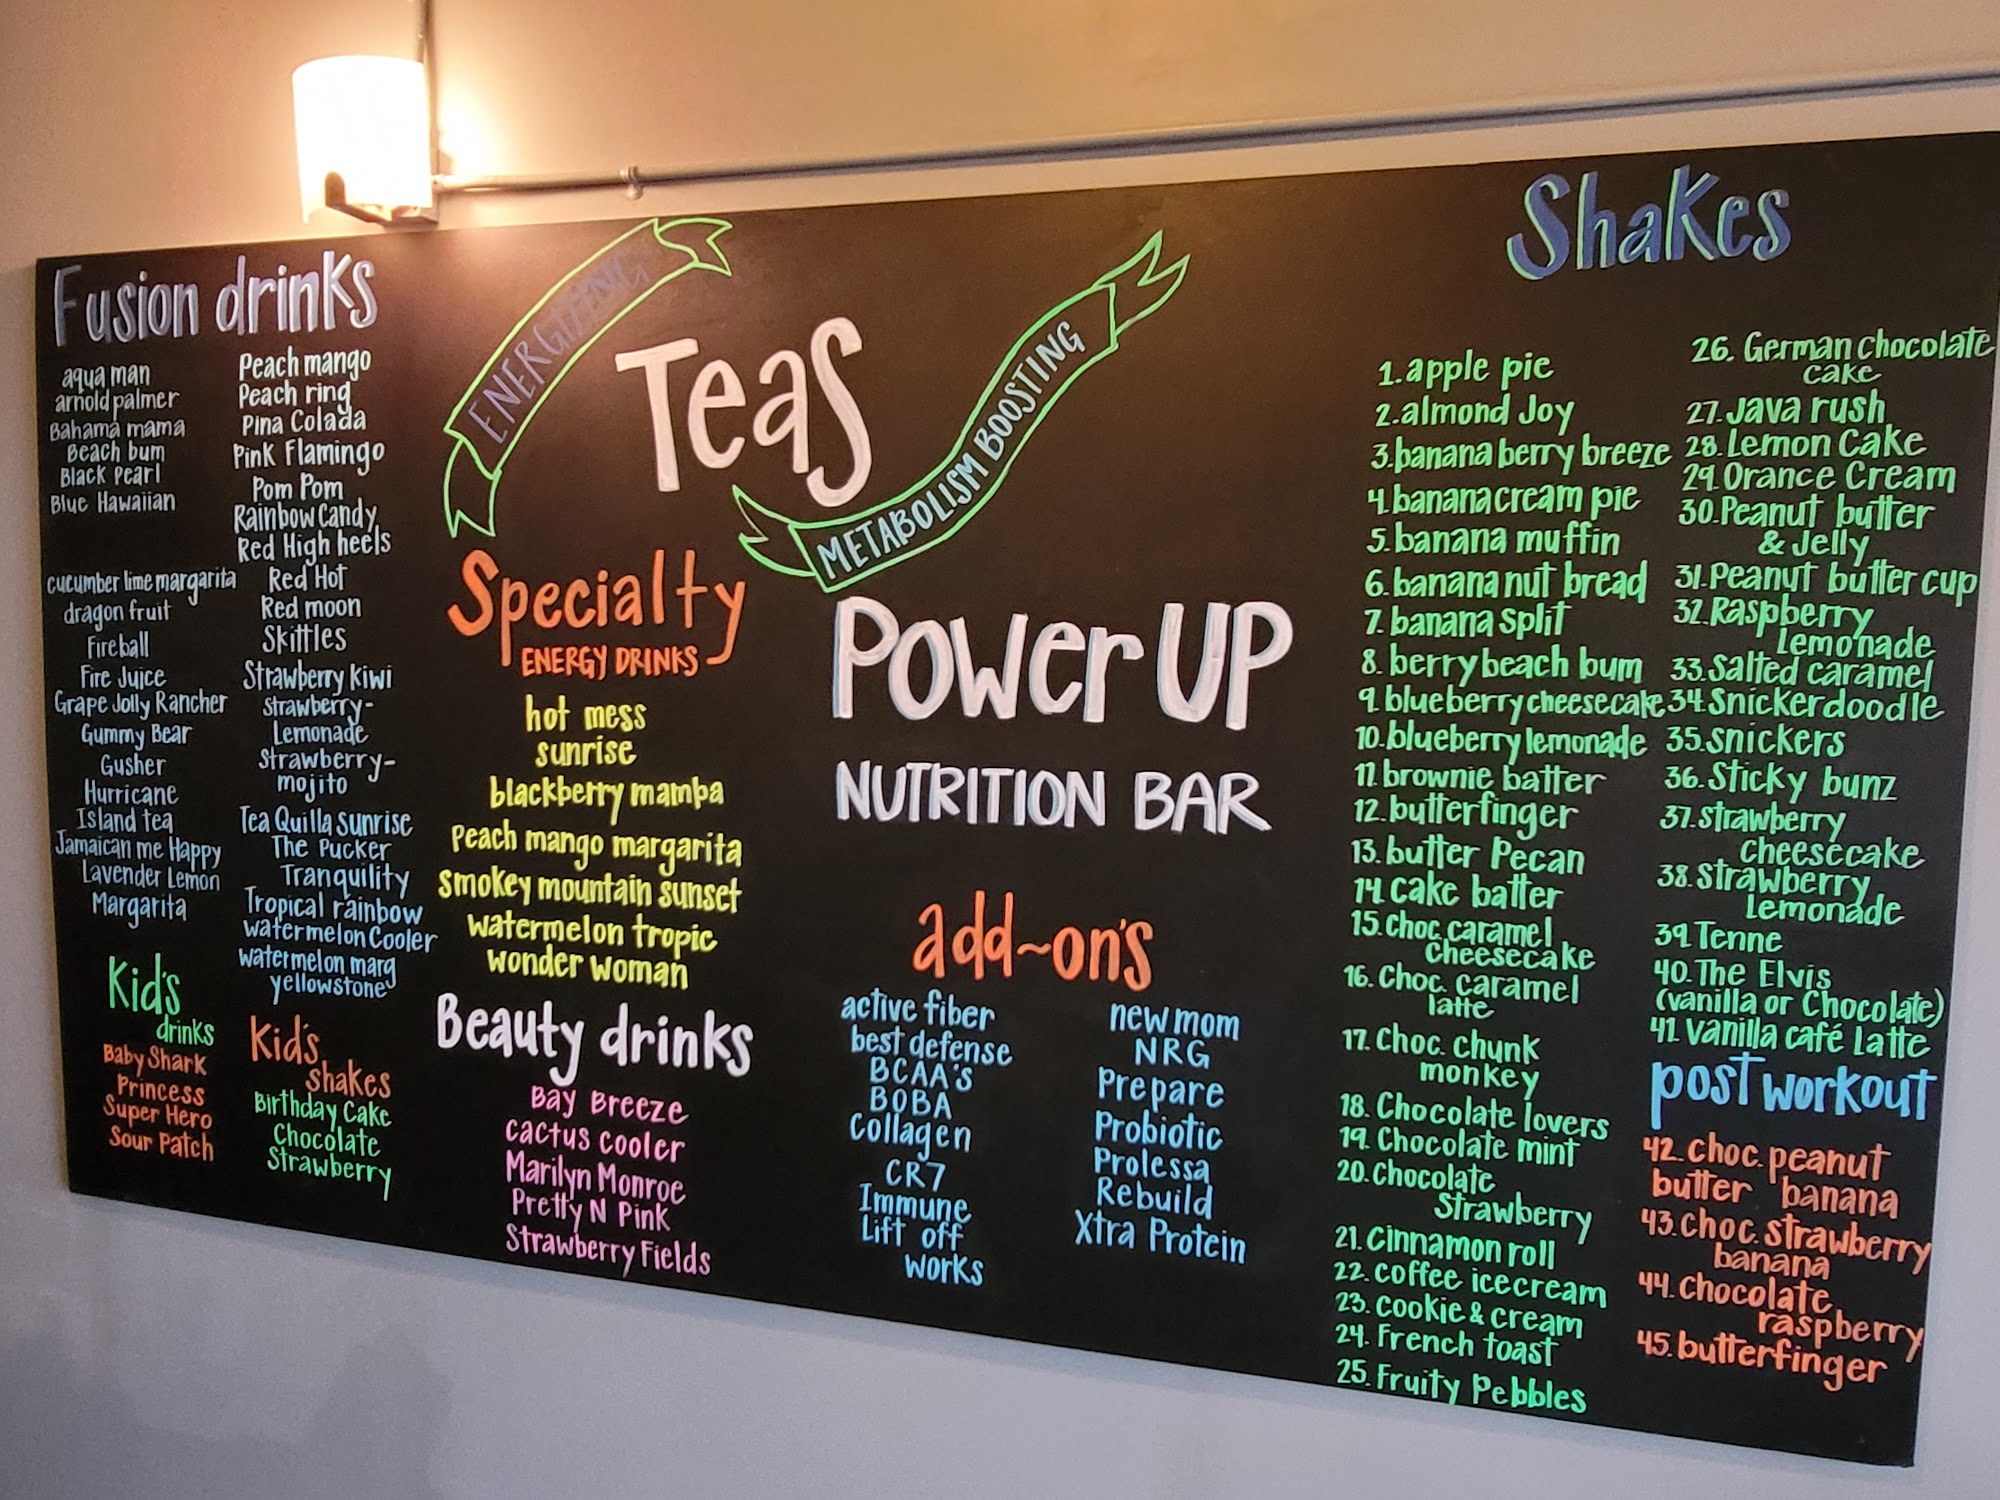 Fusion drinks
aqua man
arnold palmer
Bahama mama
Beach bum
Black Pearl
Blue Hawaiian
cucumber lime margarita
dragon fruit
Fireball
Fire Juice
Grape Jolly Rancher
Gummy Bear
Gusher
Hurricane
Island tea
Jamaican me Happy
Lavender Lemon
Margarita
Peach mango
Peach ring
Pina Colada
Pink Flamingo
Pom Pom
Rainbow Candy
Red High heels
Red Hot
Red moon
Skittles
Strawberry Kiwi
Strawberry-
Lemonade
Strawberry-
mojito
Tea Quilla Sunrise
The Pucker
Tranquility
Tropical rainbow
watermelon Cooler
watermelon marg
yellowstone
Kid's
drinks
Baby Shark
Princess
Super Hero
Sour Patch
Kid's
shakes
Birthday Cake
Chocolate
Strawberry
ENERGIZING
Teas
METABOLISM BOOSTING
Specialty
ENERGY DRINKS
hot mess
sunrise
blackberry mamba
Peach mango margarita
Smokey mountain sunset
watermelon tropic
wonder woman
Beauty drinks
Bay Breeze
Cactus Cooler
Marilyn Monroe
Pretty N Pink
Strawberry Fields
Power UP
NUTRITION BAR
add~on's
active fiber
best defense
BCAA's
BOBA
Collagen
CR7
Immune
Lift off
works
new mom
NRG
Prepare
Probiotic
Prolessa
Rebuild
Xtra Protein
Shakes
1. apple pie
2. almond Joy
3. banana berry breeze
4. banana cream pie
5. banana muffin
6. banana nut bread
7. banana split
8. berry beach bum
9. blueberry cheesecake
10. blueberry lemonade
11. brownie batter
12. butterfinger
13. butter Pecan
14. cake batter
15. Choc. caramel
cheesecake
16. Choc. caramel
latte
17. Choc. chunk
monkey
18. Chocolate lovers
19. Chocolate mint
20. Chocolate
Strawberry
21. Cinnamon roll
22. coffee icecream
23. cookie & cream
24. French toast
25. Fruity Pebbles
26. German chocolate
cake
27. Java rush
28. Lemon Cake
29. Orance Cream
30. Peanut butter
& Jelly
31. Peanut butter cup
32. Raspberry
Lemonade
33. Salted caramel
34. Snickerdoodle
35. snickers
36. Sticky bunz
37. strawberry
cheesecake
38. strawberry
Lemonade
39. Tenne
40. The Elvis
(vanilla or Chocolate)
41. vanilla café Latte
post workout
42. choc. peanut
butter banana
43. choc. strawberry
banana
44. chocolate
raspberry
45. butterfinger